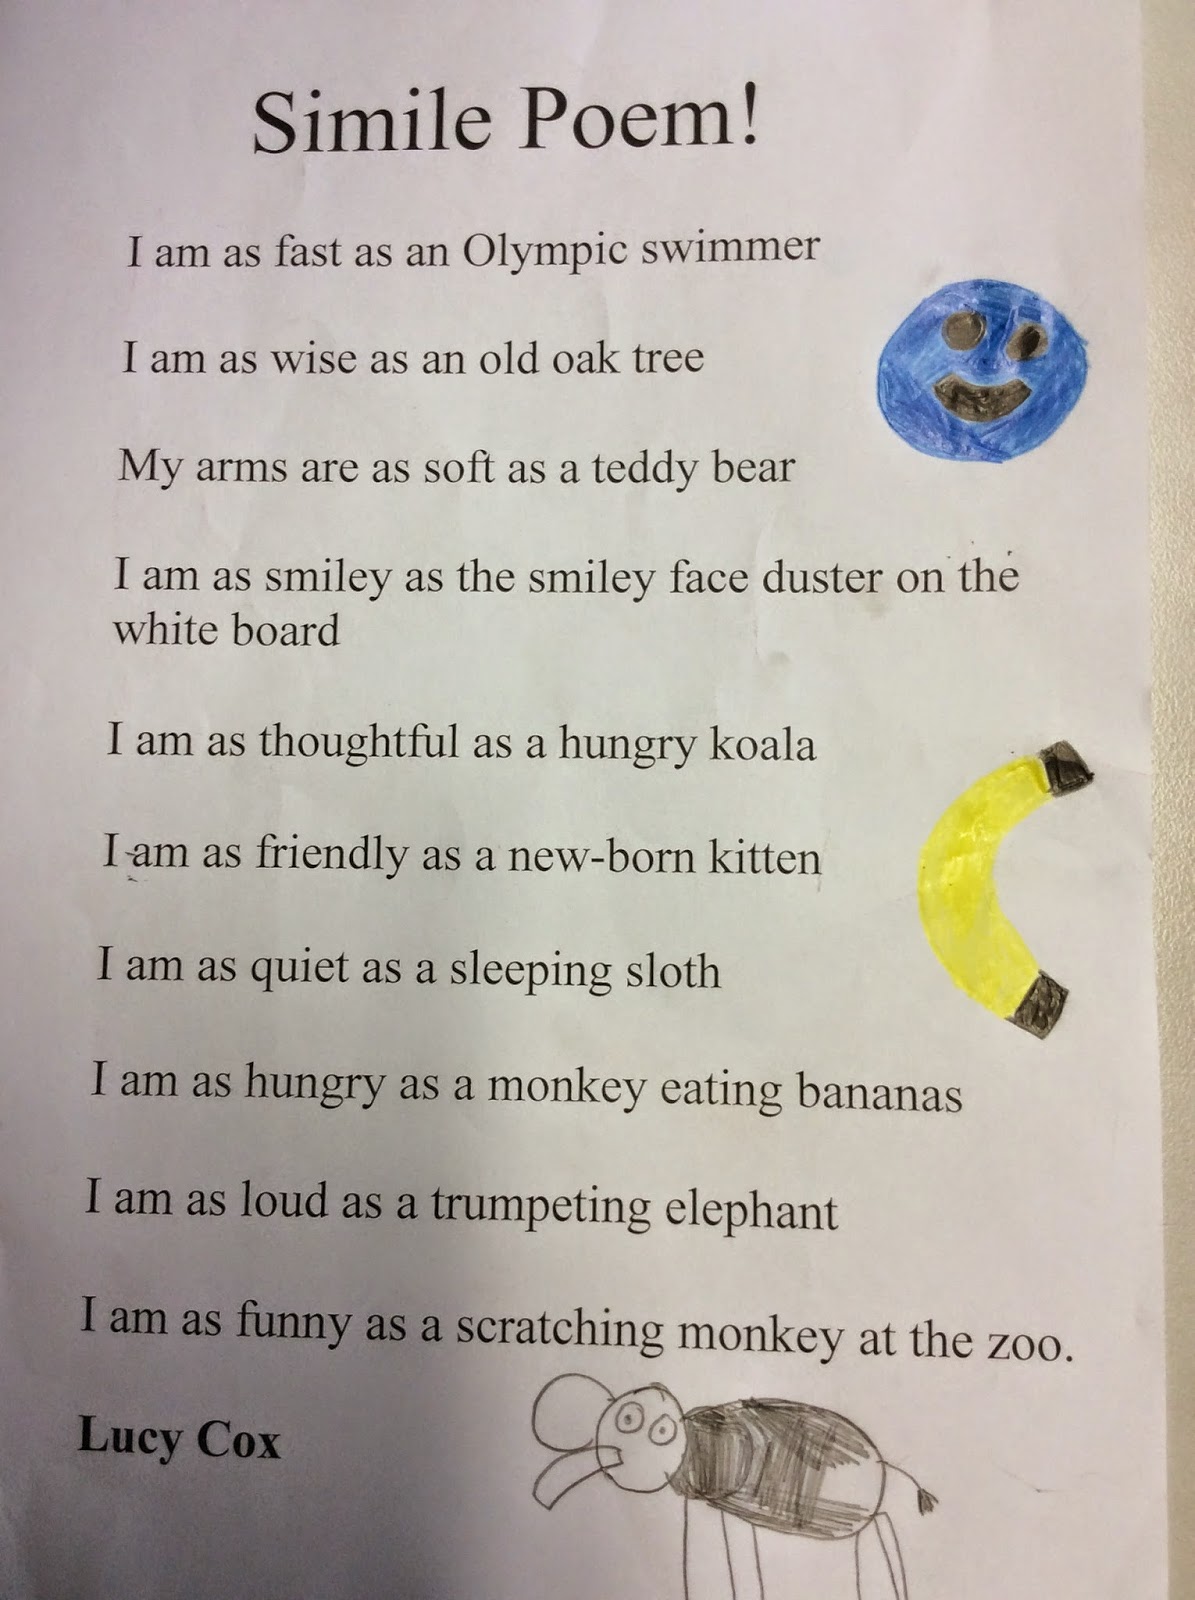 Simile Poem!
I am as fast as an Olympic swimmer
I am as wise as an old oak tree
My arms are as soft as a teddy bear
I am as smiley as the smiley face duster on the
white board
I am as thoughtful as a hungry koala
I am as friendly as a new-born kitten
I am as quiet as a sleeping sloth
I am as hungry as a monkey eating bananas
I am as loud as a trumpeting elephant
I am as funny as a scratching monkey at the zoo.
Lucy Cox